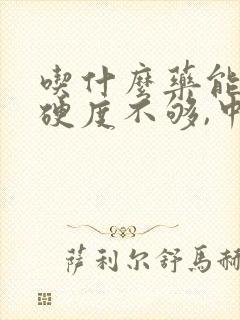 喫什麼藥能
硬度不够,中
萨利尔舒馬赫